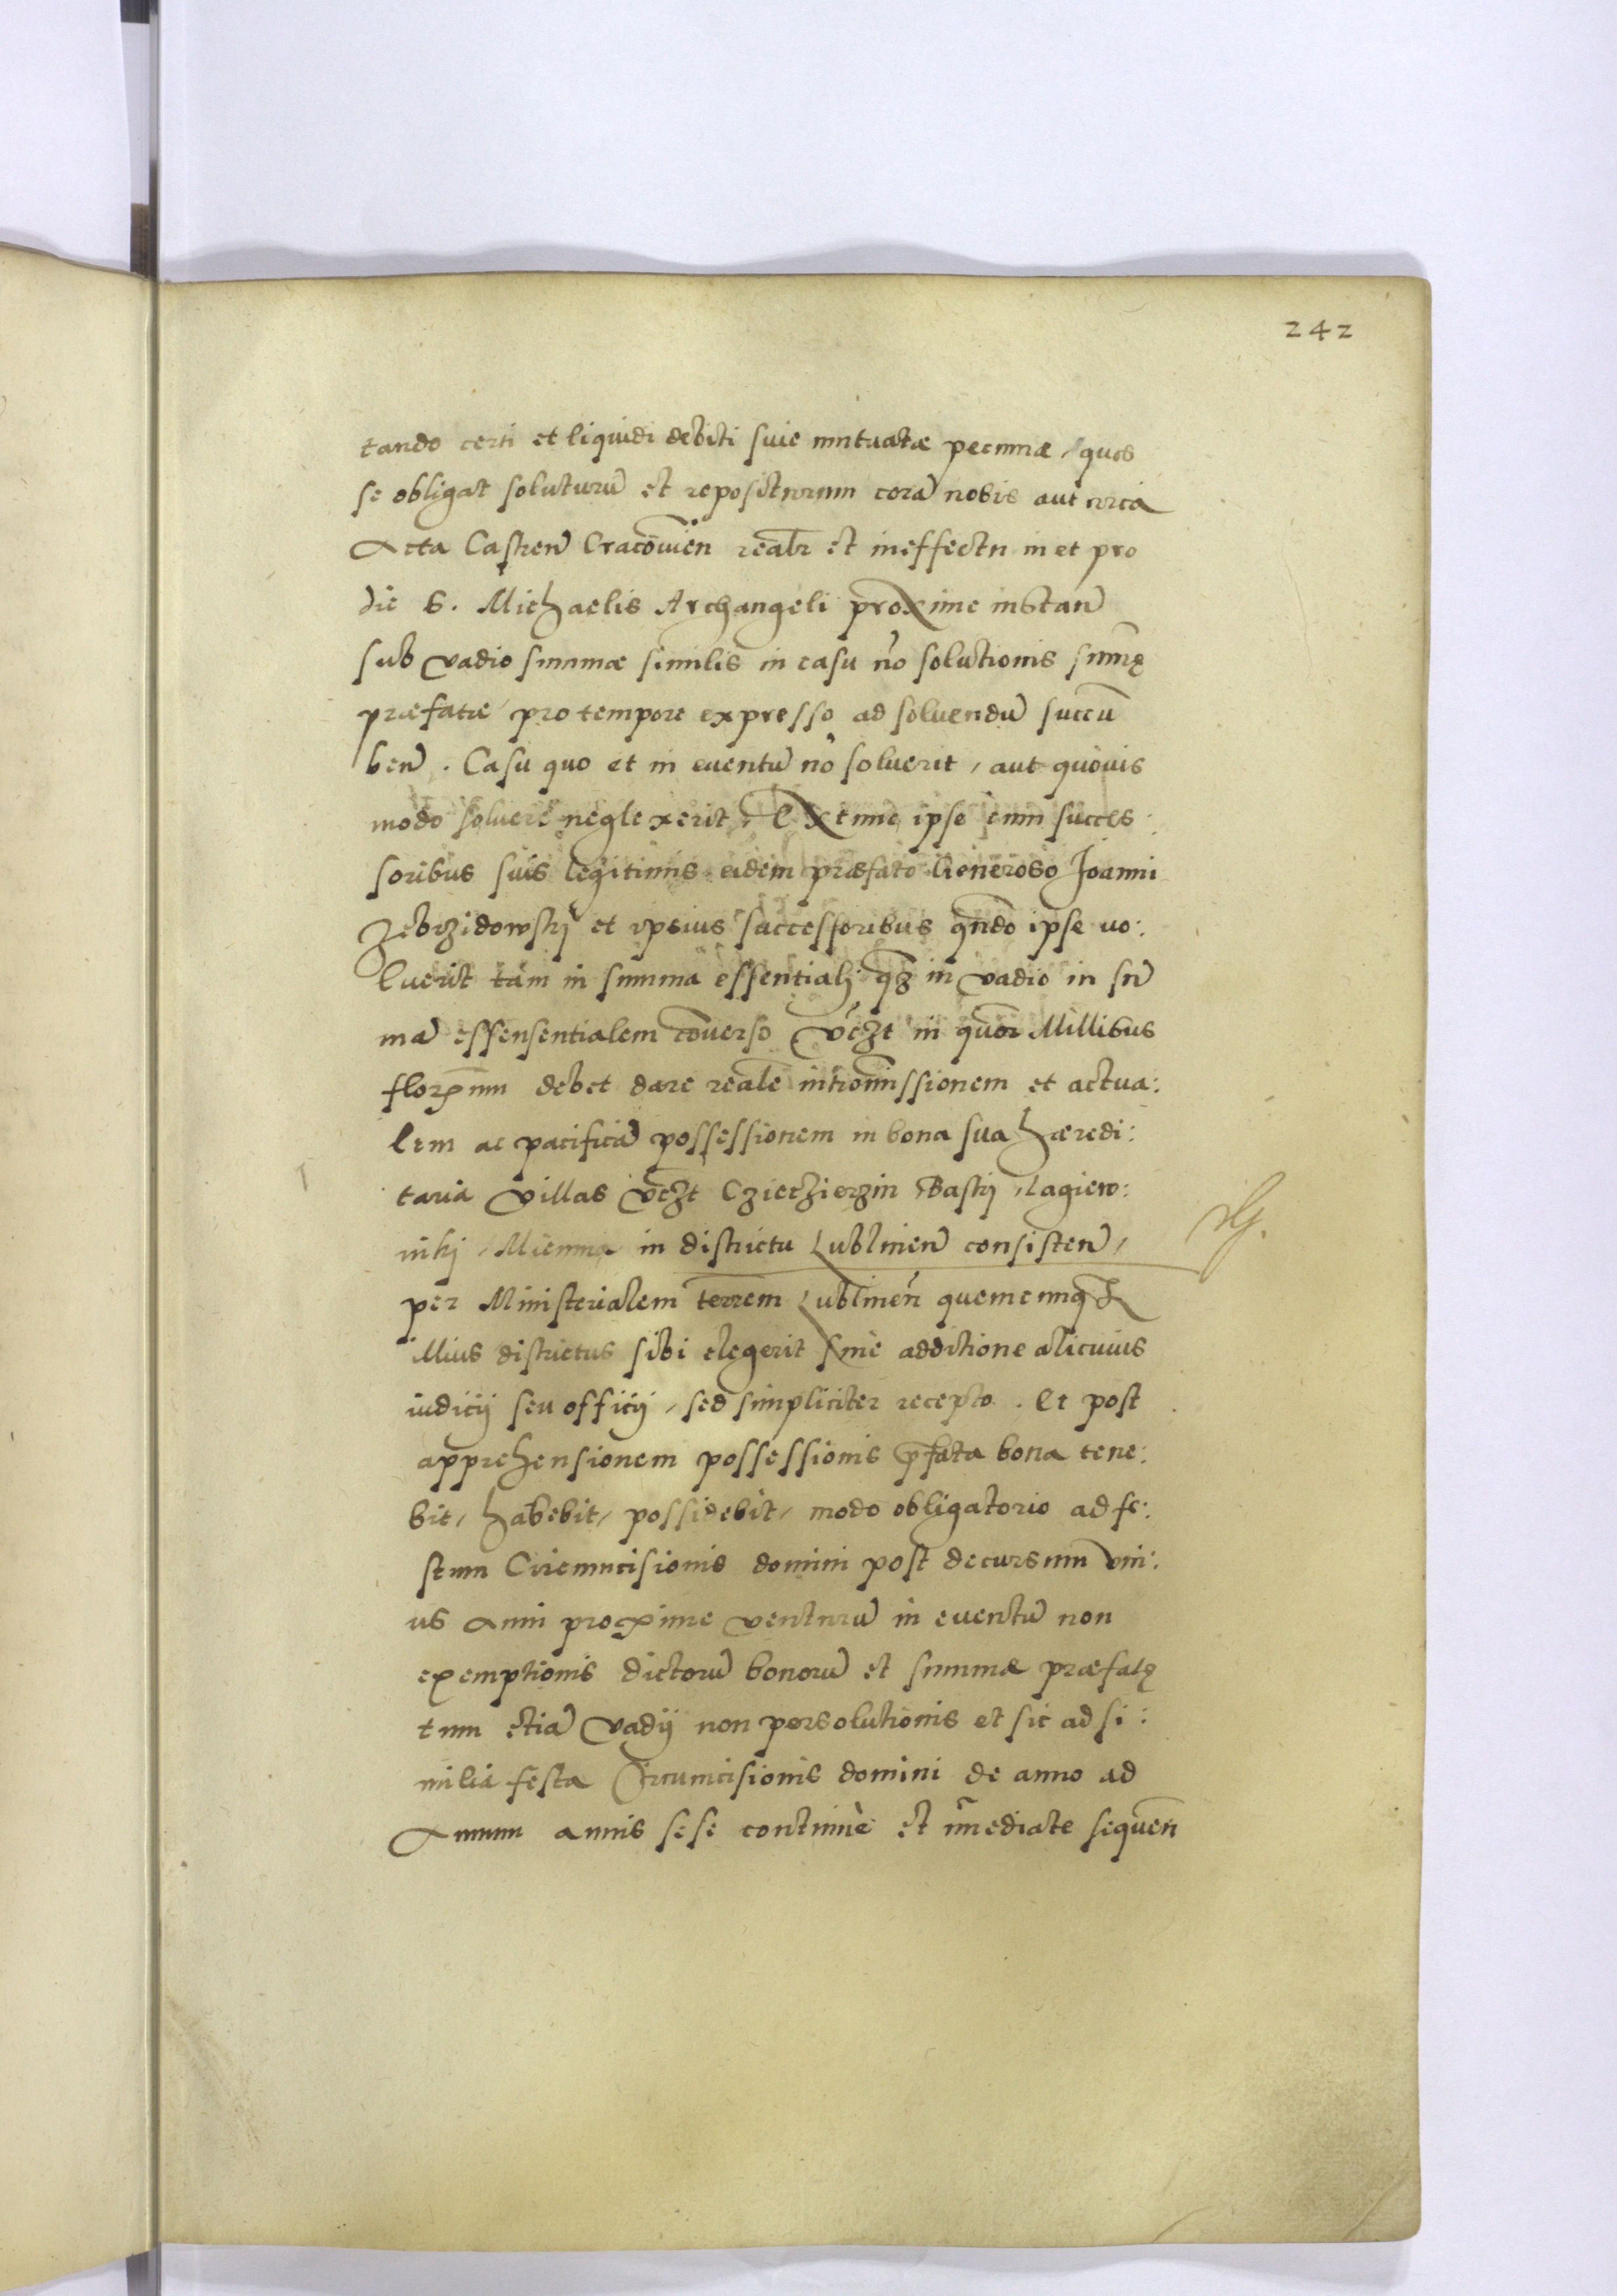 242
tando certi et liquidi debiti suie mutuatæ pecuniæ, quos
se obligat soluturū et repositurum corā nobis aut circa
Acta Castreñ Cracōvien̄ realr̄ et in effectu in et pro
die S. Michaelis Archangeli proxime instan̄
sub vadio summæ similis in casu nō solutionis sum̄ę
præfatæ pro tempore expresso ad soluendū succū
ben̄. Casu quo et in euentū nō soluerit, aut quouis
modo soluere neglexerit, Extunc ipse cum succes:
soribus suis legitimis eidem præfato Generoso Joanni
Zebrzidowskj et ipsius successoribus qn̄do ipse uo:
luerit tam in summa essentialj qʒ in vadio in sū
mā essensentialem cōuerso vc̄ʒt in quor̄ Millibus
florenum debet dare realē intromissionem et actua:
lem ac pacificā possessionem in bona sua hæredi:
taria villas vc̄ʒt Czieczierzin Baskj, Lagiew:
nikj, Miemna in districtu Lublinen̄ consisten̄,
per Ministerialem terrēm Lublinen̄ quemcunqʒ
illius districtus sibi elegerit sine additione alicuius
iudicij seu officij, sed simpliciter recepto. Et post
apprehensionem possessionis p̄fata bona tene:
bit, habebit, possidebit, modo obligatorio ad fe:
stum Circumcisionis domini post decursum vni:
us anni proxime venturū in euentū non
exemptionis dictorū bonorū et summæ præfatę
tum etiā vadij non persolutionis et sic ad si:
milia festa Circumcisionis domini de anno ad
Annum annis sese continuè et im̄ediate sequen̄